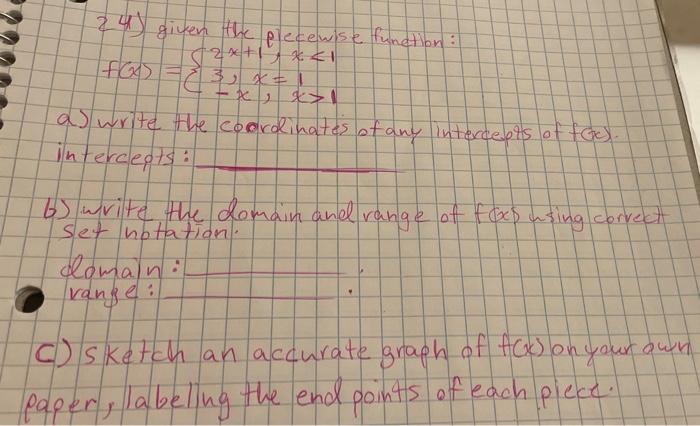 24) given the piecewise function:
f(x) = { 2x+1, x<1
3, x=1
-x, x>1
a) write the coordinates of any intercepts of f(x).
intercepts:
b) write the domain and range of f(x) using correct
set notation.
domain:
range:
c) sketch an accurate graph of f(x) on your own
paper, labeling the end points of each piece.